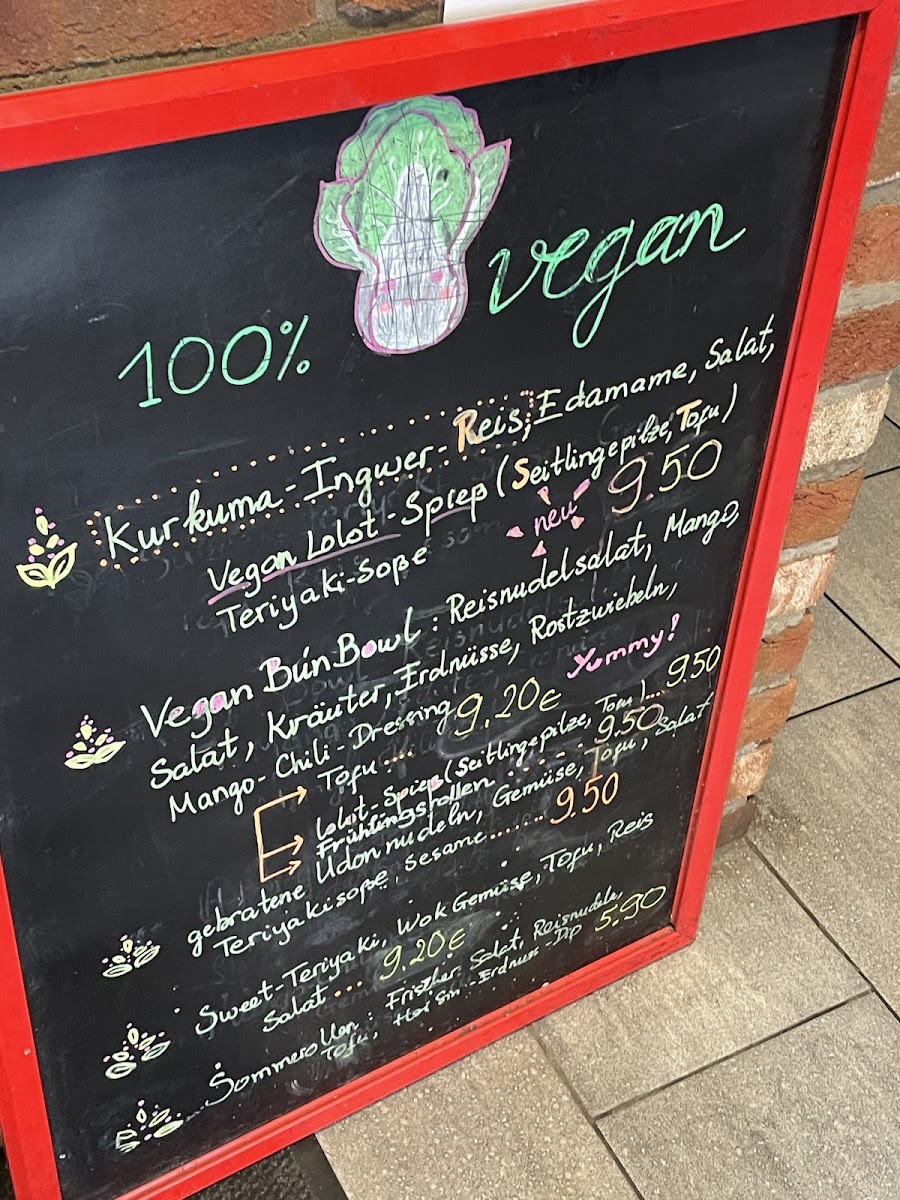 100% vegan
Kurkuma-Ingwer-Reis, Edamame, Salat,
Vegan Lolot-Spieß (Seitlingepilze, Tofu)
Teriyaki-Soße neu 9.50
Vegan Bún Bowl: Reisnudelsalat, Mango,
Salat, Kräuter, Erdnüsse, Rostzwiebeln,
Mango-Chili-Dressing 9.20€ Yummy!
Tofu ....
Lolot-Spieß (Seitlingepilze, Tofu)... 9.50
Frühlingsrollen ...... 9.50
gebratene Udonnudeln, Gemüse, Tofu, Salat
Teriyakisoße, Sesame ....... 9.50
Sweet-Teriyaki, Wok Gemüse, Tofu, Reis
Salat ... 9.20€
Sommerollen: Frischer Salat, Reisnudele,
Tofu, Hoi Sin-Erdnuss-Dip 5.90